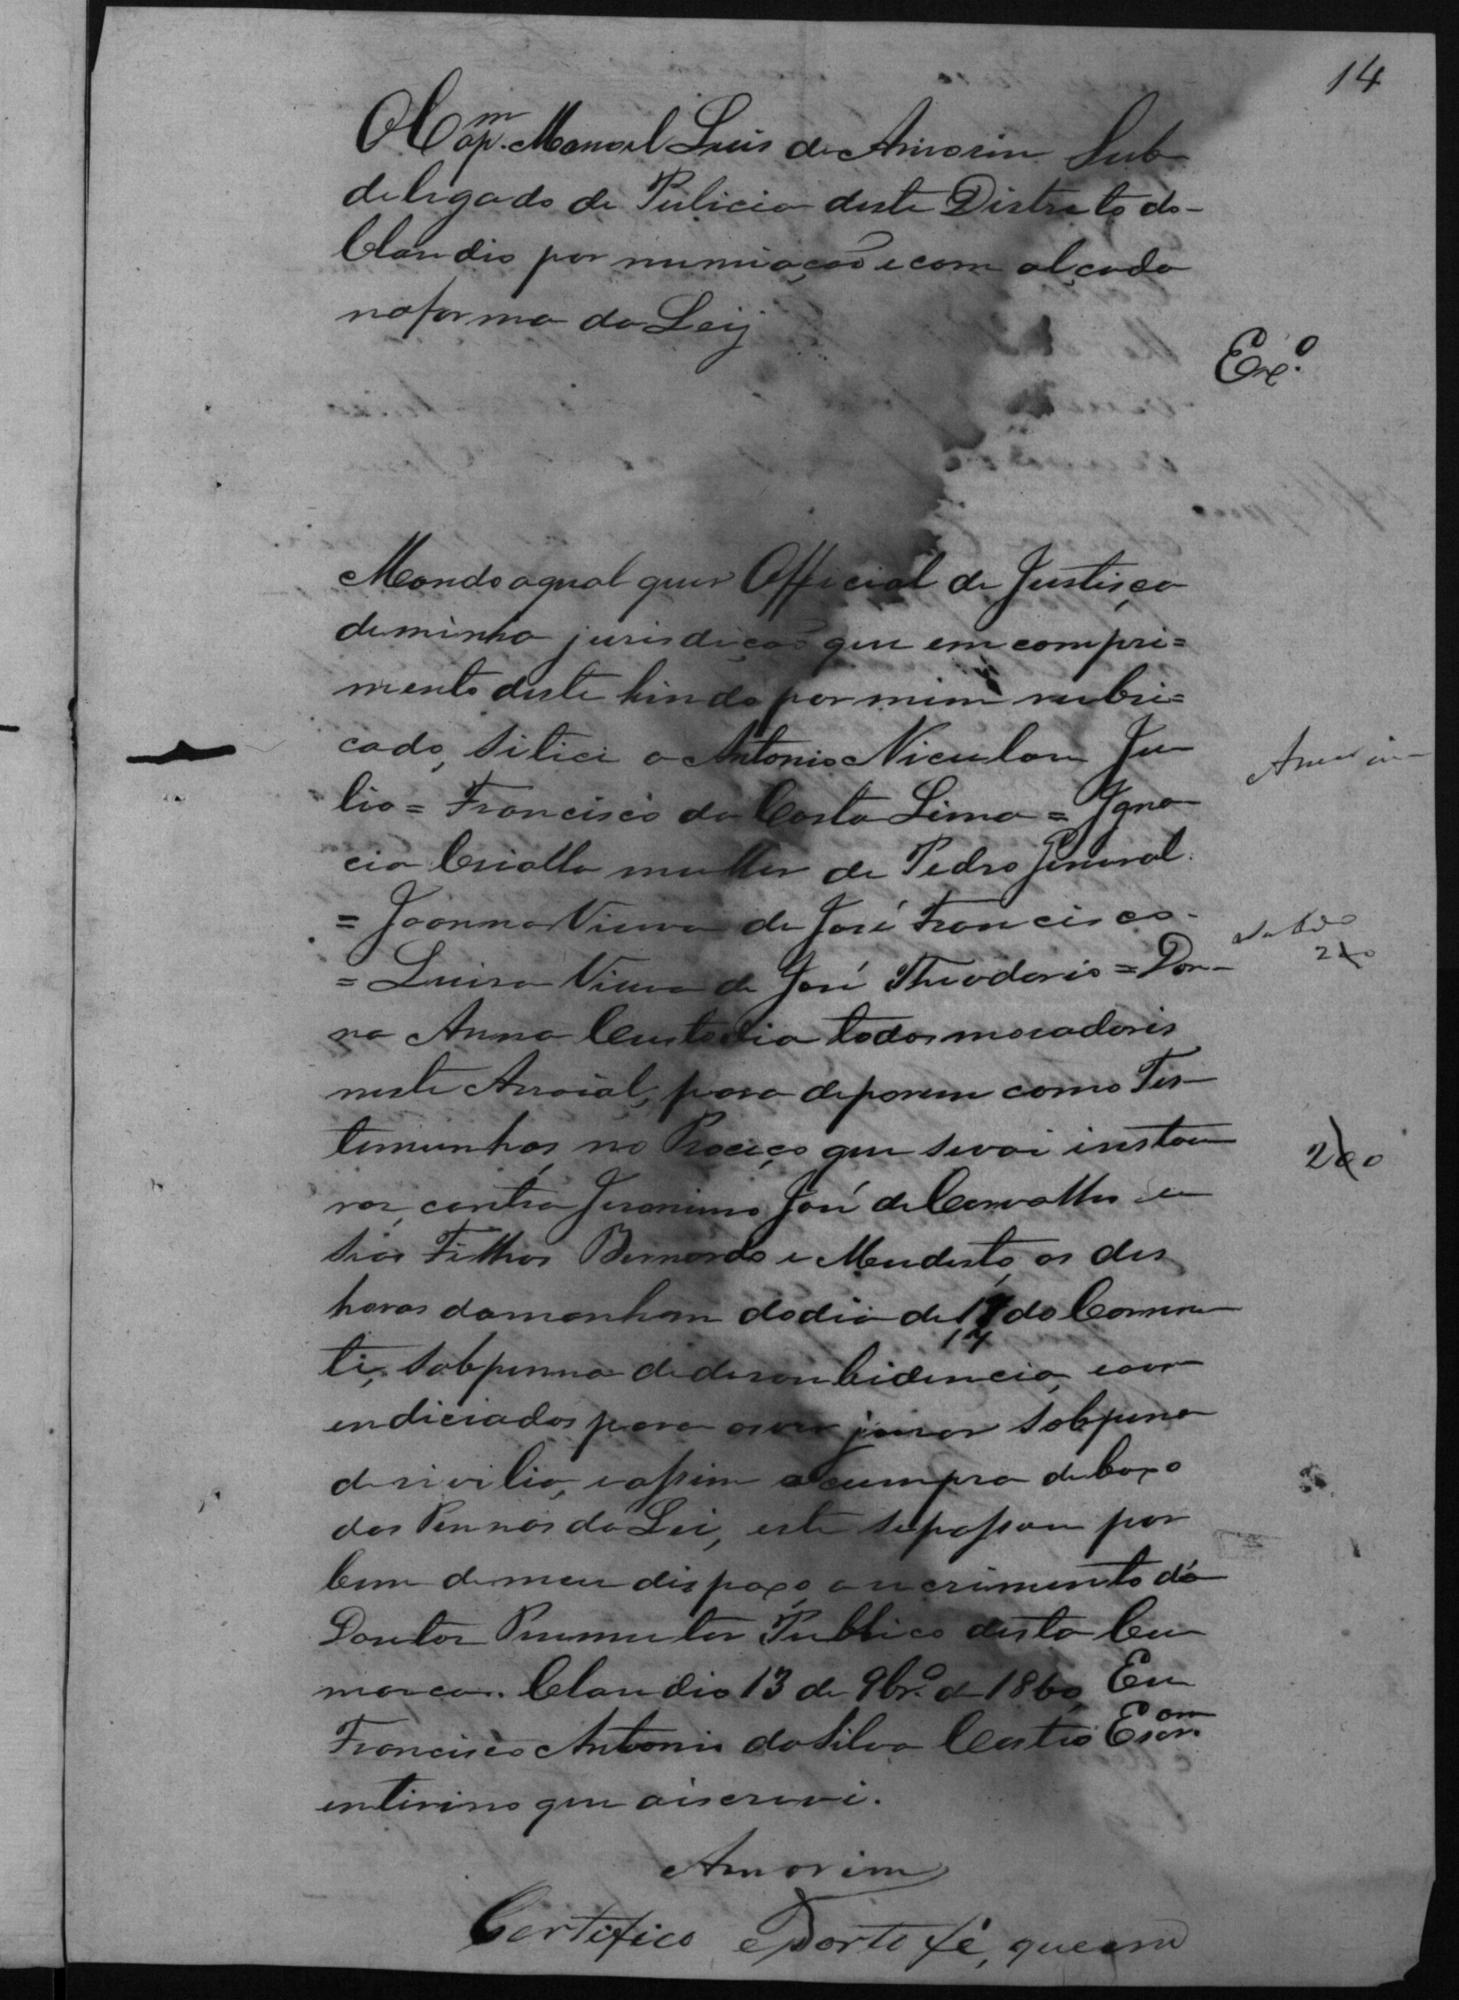 14
O Capm. Manoel Luis de Amorim Sub
delegado de Pulicia deste Distrito do
Claudio por numiação e com alçada
na forma da Leij
Ex.º
Mando aqual quer Official de Justiça
deminha jurisdição que em compri=
mento deste hindo por mim rubri=
cado, sitici a Antonio Niculau Ju
lio = Francisco da Costa Lima = Ygna
cia Criolla mulher de Pedro General.
= Joanna Viuva de José Francisco
= Luisa Viuva de José Theodorio = Don
na Anna Custodia todos moradoris
neste Arraial, para deporem como Tes
timunhas, no Proceço que sevai instau
rar, contra Jeronimo José de Carvalho eu
seos Filhos Bernardo e Mudesto, as des
horas damanham dodia de 17 do Corren
14
te, sobpenna de desoubidencia, eaos
endiciados para os ver jurar sobpena
derivilia, eassim o cumpra debaxo
das Pennas da Lei, este sepassou por
bem demeu dispaxo, a recrimento do
Doutor Prumutor Publico desta Cu
marca. Claudio 13 de 9br.º de 1860, Eu
Francisco Antonio da Silva Castro Escr.am
entirino que aiscrevi.
Amorim
Certifico e Porto fé, que em
Amorim
Sello
200
200